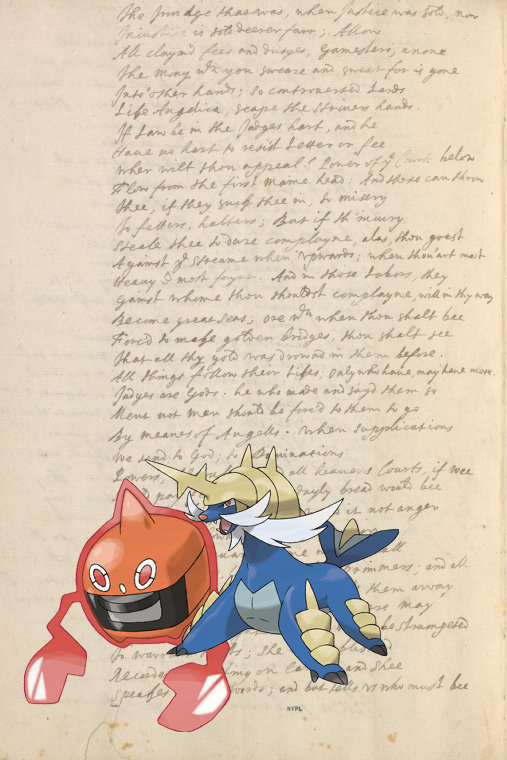 The grudge that was, when Justice was sold, now
Injustice is sold deerer farr; Allow
All claymd fees and dutyes, Gamesters, anone
The mony wch you sweare and sweat for is gone
Into other hands; So controverted Lands
Like Angelica, scape the Strivers hands.
If Law be in the Judges hart, and he
Have no hart to resist Letter or fee
wher wilt thou appeal? Power of ye Courts below
Flow from the first maine head: And these can throw
Thee, if they suck thee in, to misery
To fetters, halters; But if th'iniury
Steele thee to dare complayne, alas, thou goest
Against ye Streame when upwards; when thou art most
Heavy & most faynt. And in those Labors, they
Gainst whome thou shouldst complayne, will in thy way
Become great Seas; ore wch when thou shalt bee
Forc'd to make golden bridges, thou shalt see
That all thy gold was drownd in them before.
All things follow their Likes, only who have, may have more.
Judges are Gods: he who made and sayd them so
Ment not men should be forc'd to them to go
By meanes of Angells. when supplications
We send to God; to Dominations
Powers, all Heavens Courts, if wee
dayly bread would bee
it not anger
all
and al
them away
are may
be strumpeted
To she
on and Shee
Speakes words; and but tells us who must bee
NYPL